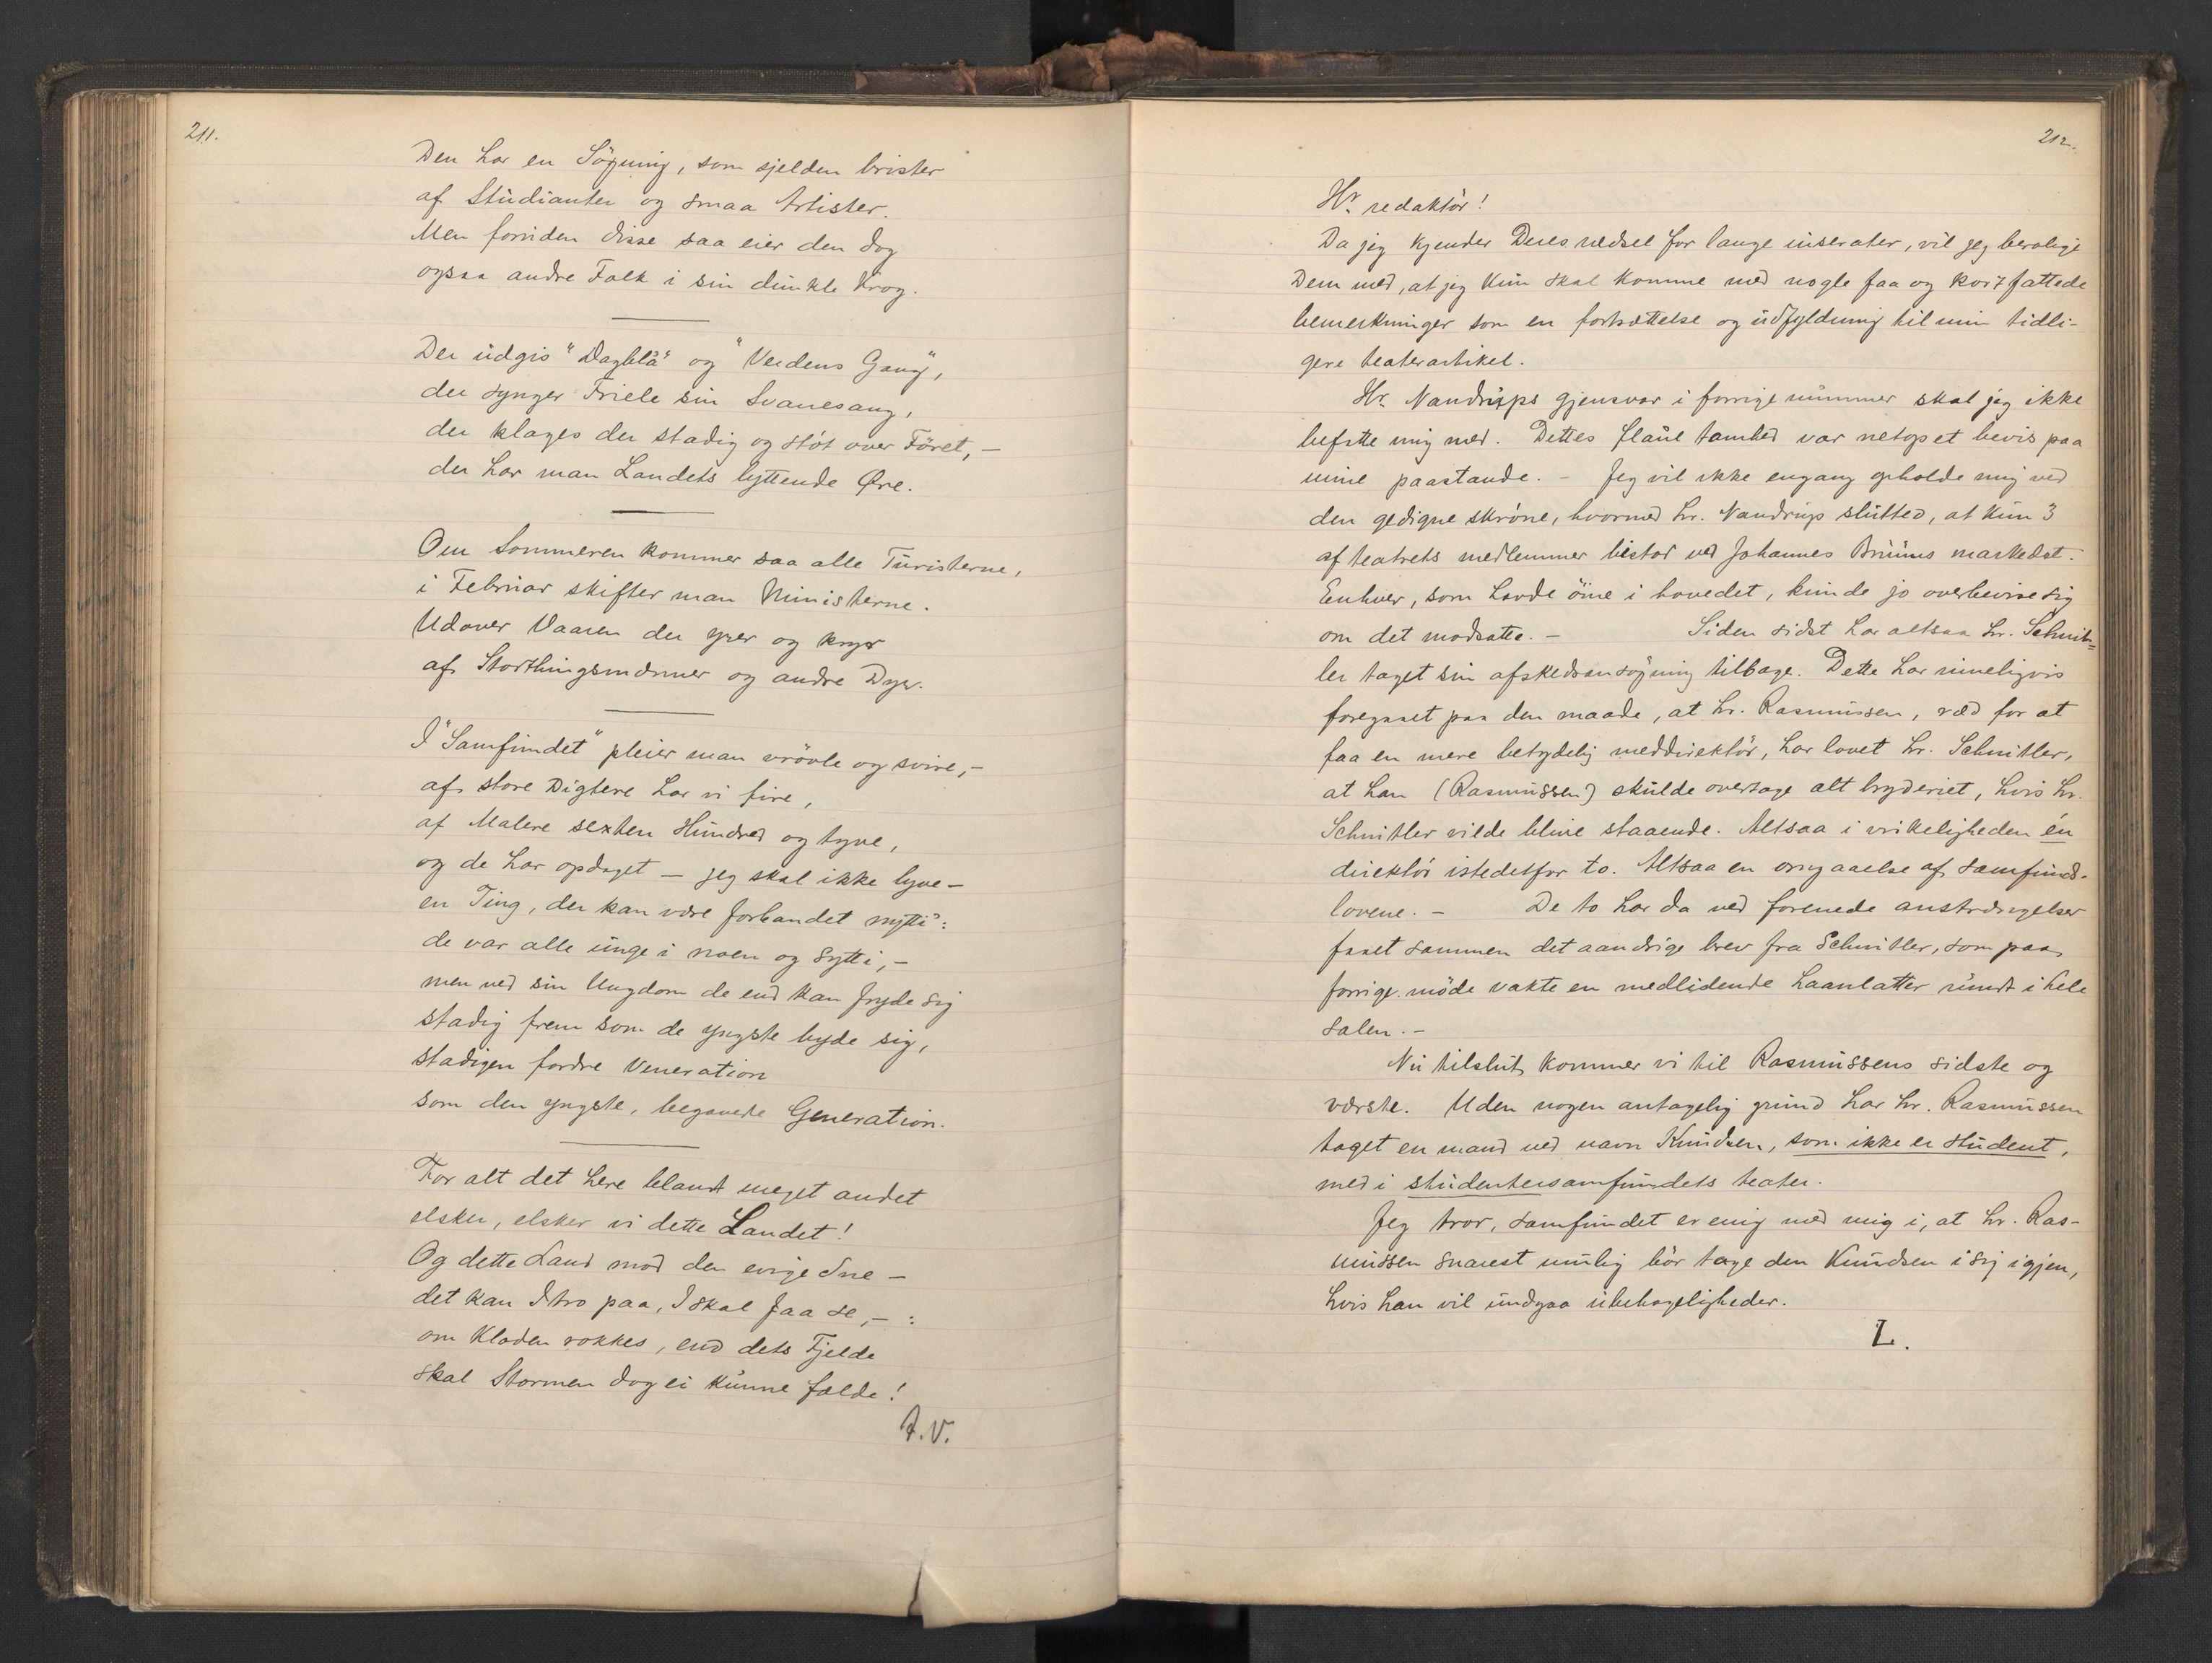 211.
Den har en Søgning, som sjelden brister
af Studianter og smaa Artister.
Men foruden disse saa eier den dog
ogsaa andre Folk i sin dunkle Krog.
Der udgis "Dagbla" og "Verdens Gang",
der synger Friele sin Svanesang,
der klages der stadig og støt over Føret, –
der har man Landets lyttende Øre.
Om Sommeren kommer saa alle Turisterne,
i Februar skifter man Ministerne.
Udover Vaaren der yrer og kryr
af Storthingsmænner og andre Dyr.
I "Samfundet" pleier man vrøvle og svire, –
af store Digtere har vi fire,
af Malere sexten Hundred og tyve,
og de har opdaget – jeg skal ikke lyve –
en Ting, der kan være forbandet nytti':
de var alle unge i noen og sytti, –
men ved sin Ungdom de end kan fryde sig
stadig frem som de yngste byde sig,
stadigen fordre Veneration
som den yngste, begavede Generation.
For alt det here blandt meget andet
elsker, elsker vi dette Landet!
Og dette Land mod den evige Sne –
det kan I tro paa, I skal faa se, – :
om Kloden rokkes, end dets Fjelde
skal Stormen dog ei kunne fælde!
A.V.
212.
Hr. redaktør!
Da jeg kjender Deres rædsel for lange inserater, vil jeg berolige
Dem med, at jeg kun skal komme med nogle faa og kortfattede
bemerkninger som en fortsættelse og udfyldning til min tidli-
gere teaterartikel.
Hr. Nandrups gjensvar i forrige nummer skal jeg ikke
befatte mig med. Dettes flaue tamhed var netop et bevis paa
mine paastande. – Jeg vil ikke engang opholde mig ved
den gedigne skrøne, hvormed hr. Nandrup slutted, at kun 3
af teatrets medlemmer bistod ved Johannes Bruuns markedet. –
Enhver, som havde øine i hovedet, kunde jo overbevise sig
om det modsatte. – Siden sidst har altsaa hr. Schnit-
ler taget sin afskedsansøgning tilbage. Dette har rimeligvis
foregaaet paa den maade, at hr. Rasmussen, ræd for at
faa en mere betydelig meddirektør, har lovet hr. Schnitler,
at han (Rasmussen) skulde overtage alt bryderiet, hvis hr.
Schnitler vilde blive staaende. Altsaa i virkeligheden én
direktør istedetfor to. Altsaa en omgaaelse af samfunds-
lovene. – De to har da ved forenede anstrængelser
faaet sammen det aandrige brev fra Schnitler, som paa
forrige møde vakte en medlidende haanlatter rundt i hele
salen. –
Nu tilslut kommer vi til Rasmussens sidste og
værste. Uden nogen antagelig grund har hr. Rasmussen
taget en mand ved navn Knudsen, som ikke er student,
med i studentersamfundets teater.
Jeg tror, samfundet er enig med mig i, at hr. Ras-
mussen snarest mulig bør tage den Knudsen i sig igjen,
hvis han vil undgaa ubehageligheder.
L.